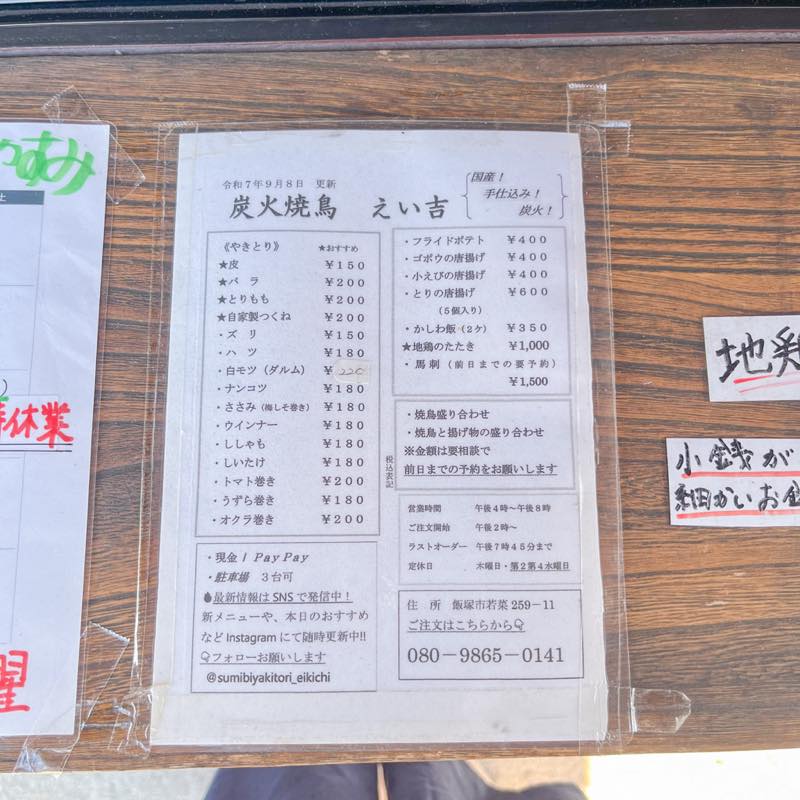 令和7年9月8日 更新
炭火焼鳥 えい吉
国産！
手仕込み！
炭火！
《やきとり》 ★おすすめ
★皮 ￥150
★バラ ￥200
★とりもも ￥200
★自家製つくね ￥200
・ズリ ￥150
・ハツ ￥180
・白モツ（ダルム） ￥220
・ナンコツ ￥180
・ささみ（梅しそ巻き） ￥180
・ウインナー ￥180
・ししゃも ￥180
・しいたけ ￥180
・トマト巻き ￥200
・うずら巻き ￥180
・オクラ巻き ￥200
・フライドポテト ￥400
・ゴボウの唐揚げ ￥400
・小えびの唐揚げ ￥400
・とりの唐揚げ ￥600
（5個入り）
・かしわ飯（2ケ） ￥350
★地鶏のたたき ￥1,000
・馬刺（前日までの要予約）
￥1,500
税込表記
・焼鳥盛り合わせ
・焼鳥と揚げ物の盛り合わせ
※金額は要相談で
前日までの予約をお願いします
営業時間 午後4時～午後8時
ご注文開始 午後2時～
ラストオーダー 午後7時45分まで
定休日 木曜日・第2第4水曜日
・現金 / PayPay
・駐車場 3台可
最新情報はSNSで発信中！
新メニューや、本日のおすすめ
などInstagramにて随時更新中!!
フォローお願いします
@sumibiyakitori_eikichi
住所 飯塚市若菜259－11
ご注文はこちらから
080－9865－0141
すみ
土
休業
曜
地鶏
小銭が
細かいお金